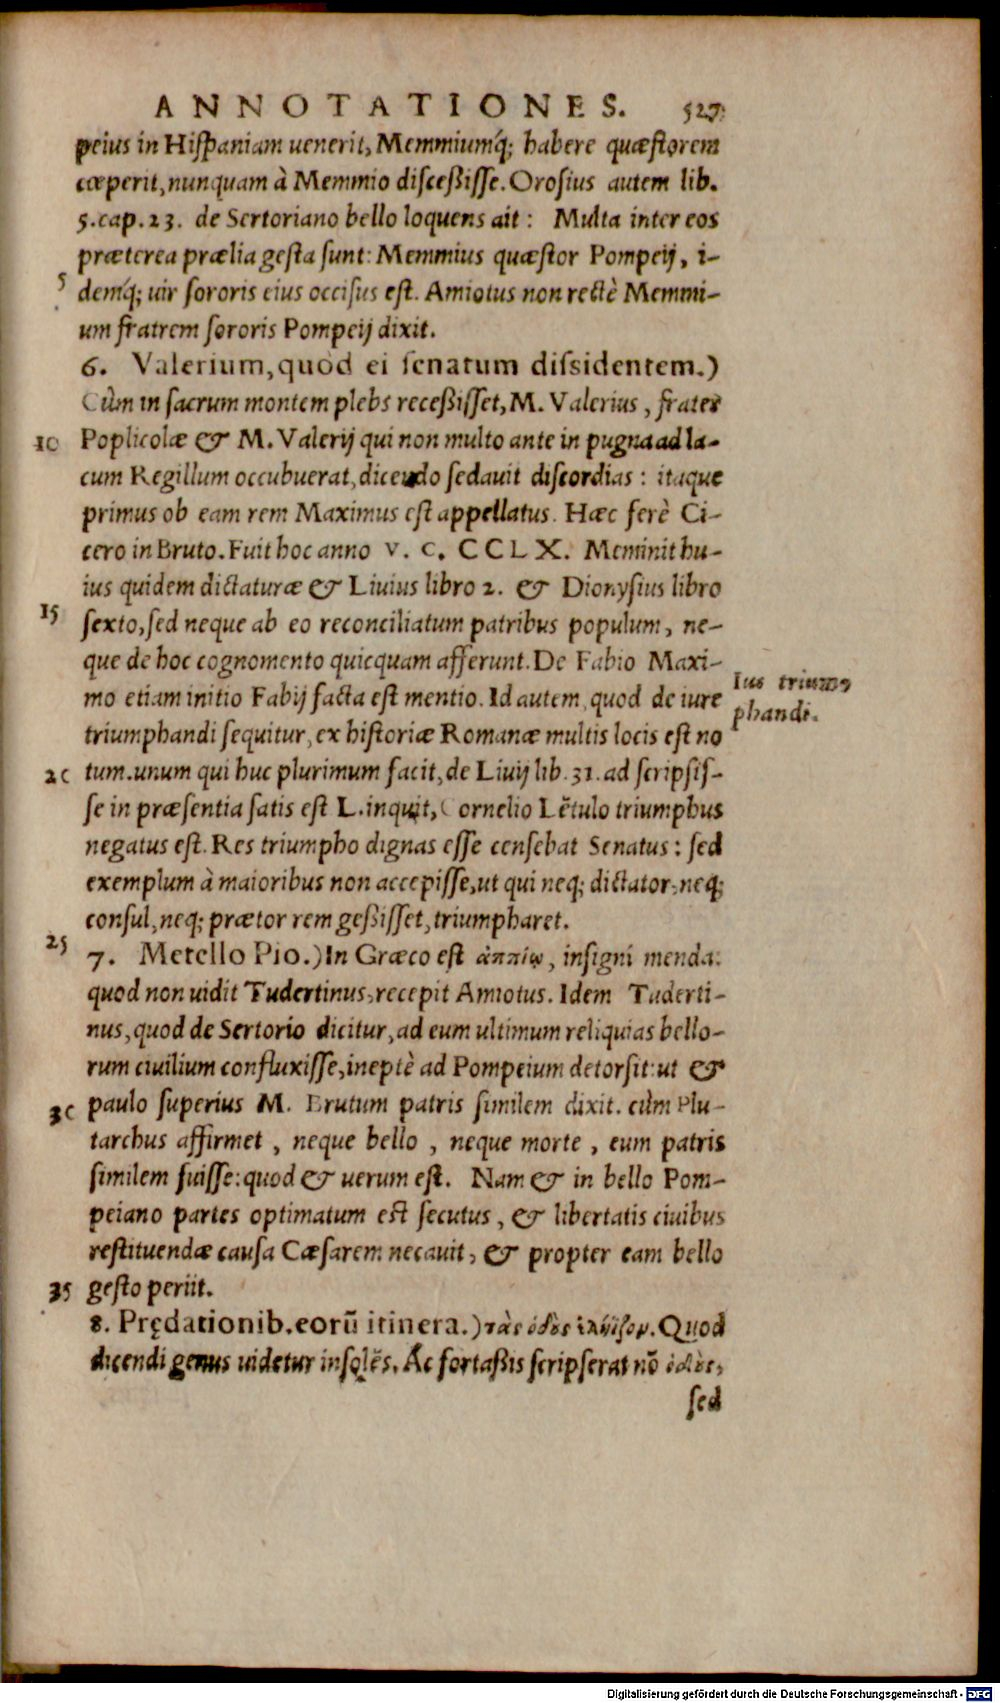 ANNOTATIONES. 527
peius in Hiſpaniam uenerit, Memmiumq́; habere quæſtorem
cœperit, nunquam à Memmio diſceßiſſe. Oroſius autem lib.
5. cap. 23. de Sertoriano bello loquens ait: Multa inter eos
præterea prælia geſta ſunt: Memmius quæſtor Pompeij, i-
5
demq́; uir ſororis eius occiſus eſt. Amiotus non rectè Memmi-
um fratrem ſororis Pompeij dixit.
6. Valerium, quòd ei ſenatum diſsidentem.)
Cùm in ſacrum montem plebs receßiſſet, M. Valerius, frater
10 Poplicolæ & M. Valerij qui non multo ante in pugna ad la-
cum Regillum occubuerat, dicendo ſedauit diſcordias: itaque
primus ob eam rem Maximus eſt appellatus. Hæc ferè Ci-
cero in Bruto. Fuit hoc anno V. C. CCLX. Meminit hu-
ius quidem dictaturæ & Liuius libro 2. & Dionyſius libro
15 ſexto, ſed neque ab eo reconciliatum patribus populum, ne-
que de hoc cognomento quicquam afferunt. De Fabio Maxi-
mo etiam initio Fabij facta eſt mentio. Id autem, quod de iure
Ius trium-
phandi.
triumphandi ſequitur, ex hiſtoriæ Romanæ multis locis eſt no
20 tum. unum qui huc plurimum facit, de Liuij lib. 31. ad ſcripſiſ-
ſe in præſentia ſatis eſt L. inquit, Cornelio Lẽtulo triumphus
negatus eſt. Res triumpho dignas eſſe cenſebat Senatus: ſed
exemplum à maioribus non accepiſſe, ut qui neq; dictator, neq;
conſul, neq; prætor rem geßiſſet, triumpharet.
25
7. Metello Pio.) In Græco eſt ἀππίῳ, inſigni menda:
quod non uidit Tudertinus, recepit Amiotus. Idem Tuderti-
nus, quod de Sertorio dicitur, ad eum ultimum reliquias bello-
rum ciuilium confluxiſſe, ineptè ad Pompeium detorſit: ut &
30 paulo ſuperius M. Brutum patris ſimilem dixit. cùm Plu-
tarchus affirmet, neque bello, neque morte, eum patris
ſimilem fuiſſe: quod & uerum eſt. Nam & in bello Pom-
peiano partes optimatum eſt ſecutus, & libertatis ciuibus
reſtituendæ cauſa Cæſarem necauit, & propter eam bello
35 geſto periit.
8. Prędationib. eorũ itinera.) τὰς ὁδὸς Quod
dicendi genus uidetur inſolẽs. Ac fortaßis ſcripſerat nõ ὁδὸς,
ſed
Digitalisierung gefördert durch die Deutsche Forschungsgemeinschaft - DFG